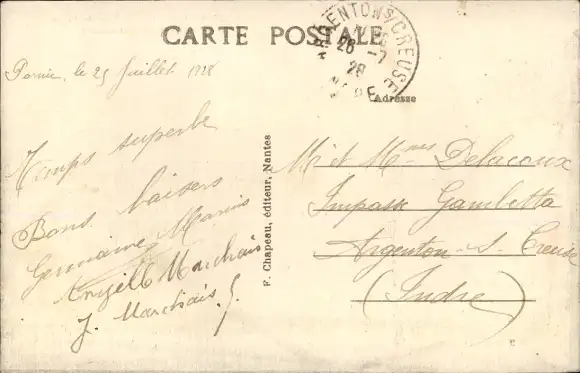 CARTE POSTALE
ARGENTON S/CREUSE
26 - 7
28
INDRE
Adresse
Pornic, le 25 Juillet 1928
Temps superbe
Bons baisers
Germaine Marius
Marchais
J. Marchais
F. Chapeau, éditeur, Nantes
M. et Mmes Delacoux
Impasse Gambetta
Argenton-s-Creuse
(Indre)